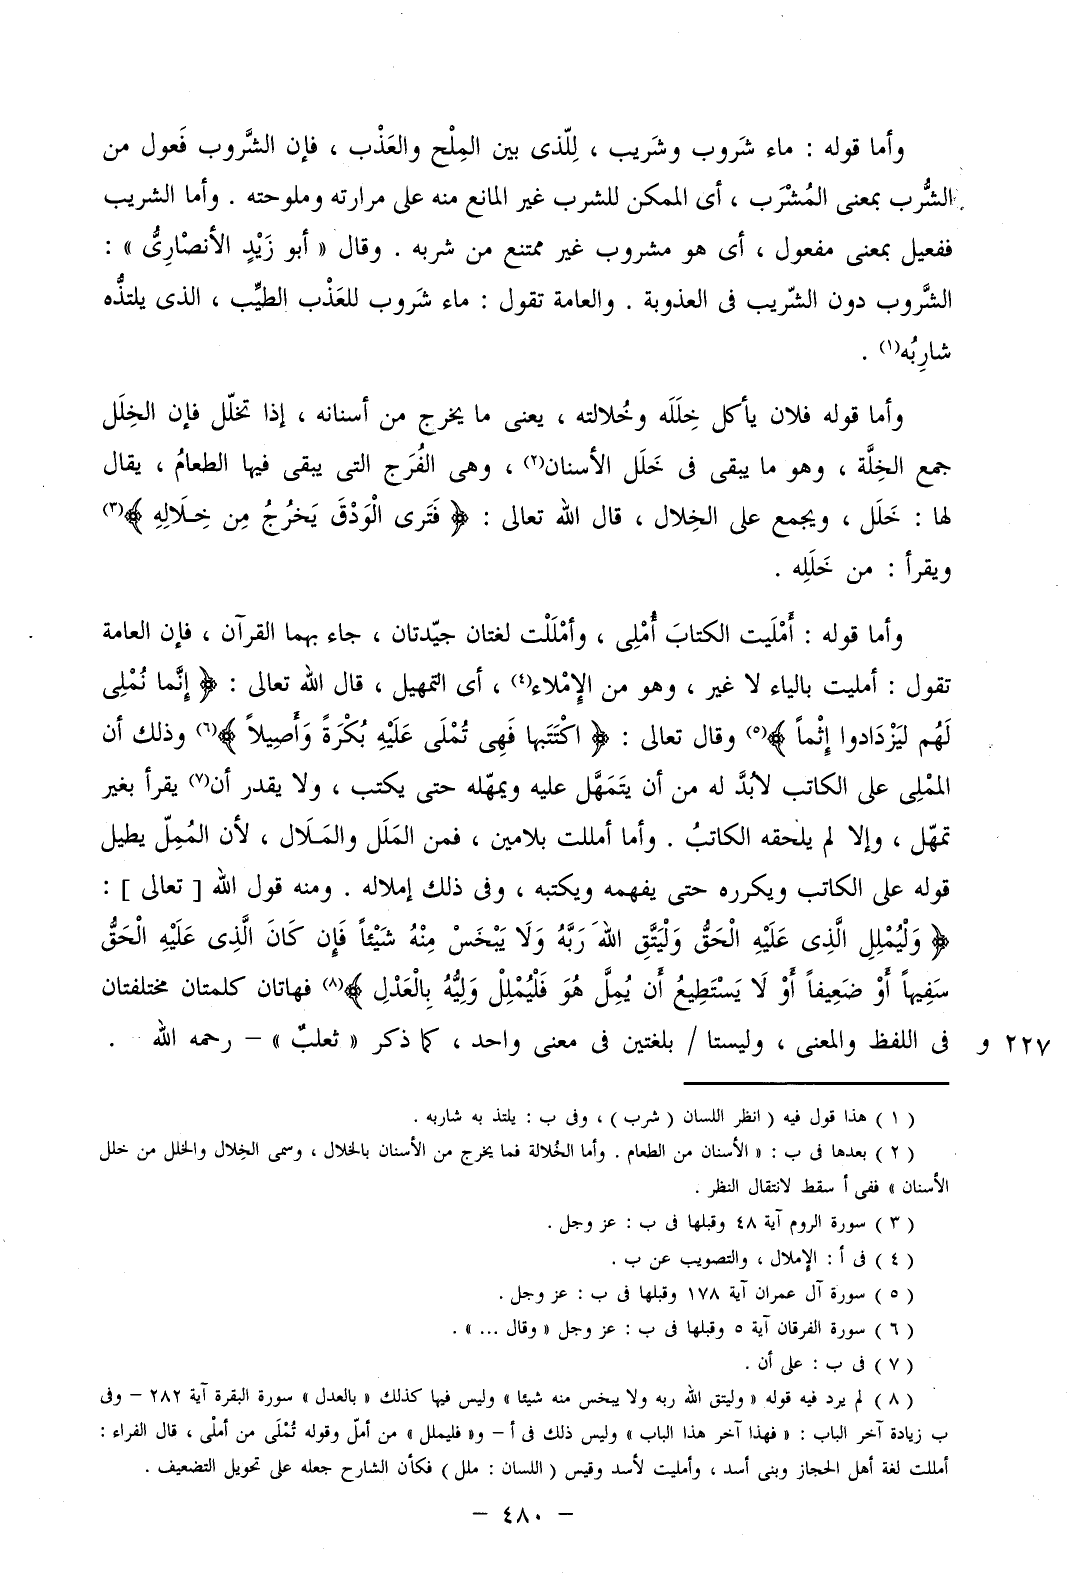 وأما قوله : ماء شَروب وشَريب ، لِلّذى بين المِلْح والعَذْب ، فإن الشَّروب فَعول من
الشُّرب بمعنى المُشْرَب ، أى الممكن للشرب غير المانع منه على مرارته وملوحته . وأما الشريب
ففعيل بمعنى مفعول ، أى هو مشروب غير ممتنع من شربه . وقال « أبو زَيْدٍ الأنصْارِىُّ » :
الشَّروب دون الشّريب فى العذوبة . والعامة تقول : ماء شَروب للعَذْب الطيِّب ، الذى يلتذُّه
شارِبُه(١) .
وأما قوله فلان يأكل خِلَلَه وخُلالته ، يعنى ما يخرج من أسنانه ، إذا تخلّل فإن الخِلَل
جمع الخِلَّة ، وهو ما يبقى فى خَلَل الأسنان(٢) ، وهى الفُرَج التى يبقى فيها الطعامُ ، يقال
لها : خَلَل ، ويجمع على الخِلال ، قال الله تعالى : ﴿ فَتَرى الْوَدْقَ يَخرُجُ مِن خِـلَالِهِ ﴾(٣)
ويقرأ : من خَلَلِه .
وأما قوله : أَمْلَيت الكتابَ أُمْلِى ، وأمْلَلْت لغتان جيّدتان ، جاء بهما القرآن ، فإن العامة
تقول : أمليت بالياء لا غير ، وهو من الإِمْلاء(٤) ، أى التمهيل ، قال الله تعالى : ﴿ إِنَّما نُمْلِى
لَهُم لِيَزْدَادوا إِثْماً ﴾(٥) وقال تعالى : ﴿ اكْتَتَبها فَهِى تُمْلَى عَلَيْهِ بُكْرَةً وَأَصِيلاً ﴾(٦) وذلك أن
المْلِى على الكاتب لابُدَّ له من أن يتَمَهَّل عليه ويمهّله حتى يكتب ، ولا يقدر أن(٧) يقرأ بغير
تمهّل ، وإلا لم يلحقه الكاتبُ . وأما أمللت بلامين ، فمن المَلَل والمَـلَال ، لأن المُمِلّ يطيل
قوله على الكاتب ويكرره حتى يفهمه ويكتبه ، وفى ذلك إملاله . ومنه قول الله [ تعالى ] :
﴿ وَلْيُمْلِلِ الَّذِى عَلَيْهِ الْحَقُّ وَلْيَتَّقِ اللهَ رَبَّهُ وَلَا يَبْخَسْ مِنْهُ شَيْئاً فَإِن كَانَ الَّذِى عَلَيْهِ الْحَقُّ
سَفِيهاً أَوْ ضَعِيفاً أَوْ لَا يَسْتَطِيعُ أَن يُمِلَّ هُوَ فَلْيُمْلِلْ وَلِيُّهُ بِالْعَدْلِ ﴾(٨) فهاتان كلمتان مختلفتان
٢٢٧ و فى اللفظ والمعنى ، وليستا / بلغتين فى معنى واحد ، كما ذكر « ثعلبٌ » – رحمه الله .
( ١ ) هذا قول فيه ( انظر اللسان ( شرب ) ، وفى ب : يلتذ به شاربه .
( ٢ ) بعدها فى ب : « الأسنان من الطعام . وأما الخُلالة فما يخرج من الأسنان بالخلال ، وسمى الخِلال والخلل من خلل
الأسنان » ففى أ سقط لانتقال النظر .
( ٣ ) سورة الروم آية ٤٨ وقبلها فى ب : عز وجل .
( ٤ ) فى أ : الإملال ، والتصويب عن ب .
( ٥ ) سورة آل عمران آية ١٧٨ وقبلها فى ب : عز وجل .
( ٦ ) سورة الفرقان آية ٥ وقبلها فى ب : عز وجل « وقال ... » .
( ٧ ) فى ب : على أن .
( ٨ ) لم يرد فيه قوله « وليتق الله ربه ولا يبخس منه شيئا » وليس فيها كذلك « بالعدل » سورة البقرة آية ٢٨٢ – وفى
ب زيادة آخر الباب : « فهذا آخر هذا الباب » وليس ذلك فى أ – و« فليملل » من أملّ وقوله تُمْلَى من أملْى ، قال الفراء :
أمللت لغة أهل الحجاز وبنى أسد ، وأمليت لأسد وقيس ( اللسان : ملل ) فكأن الشارح جعله على تحويل التضعيف .
– ٤٨٠ –